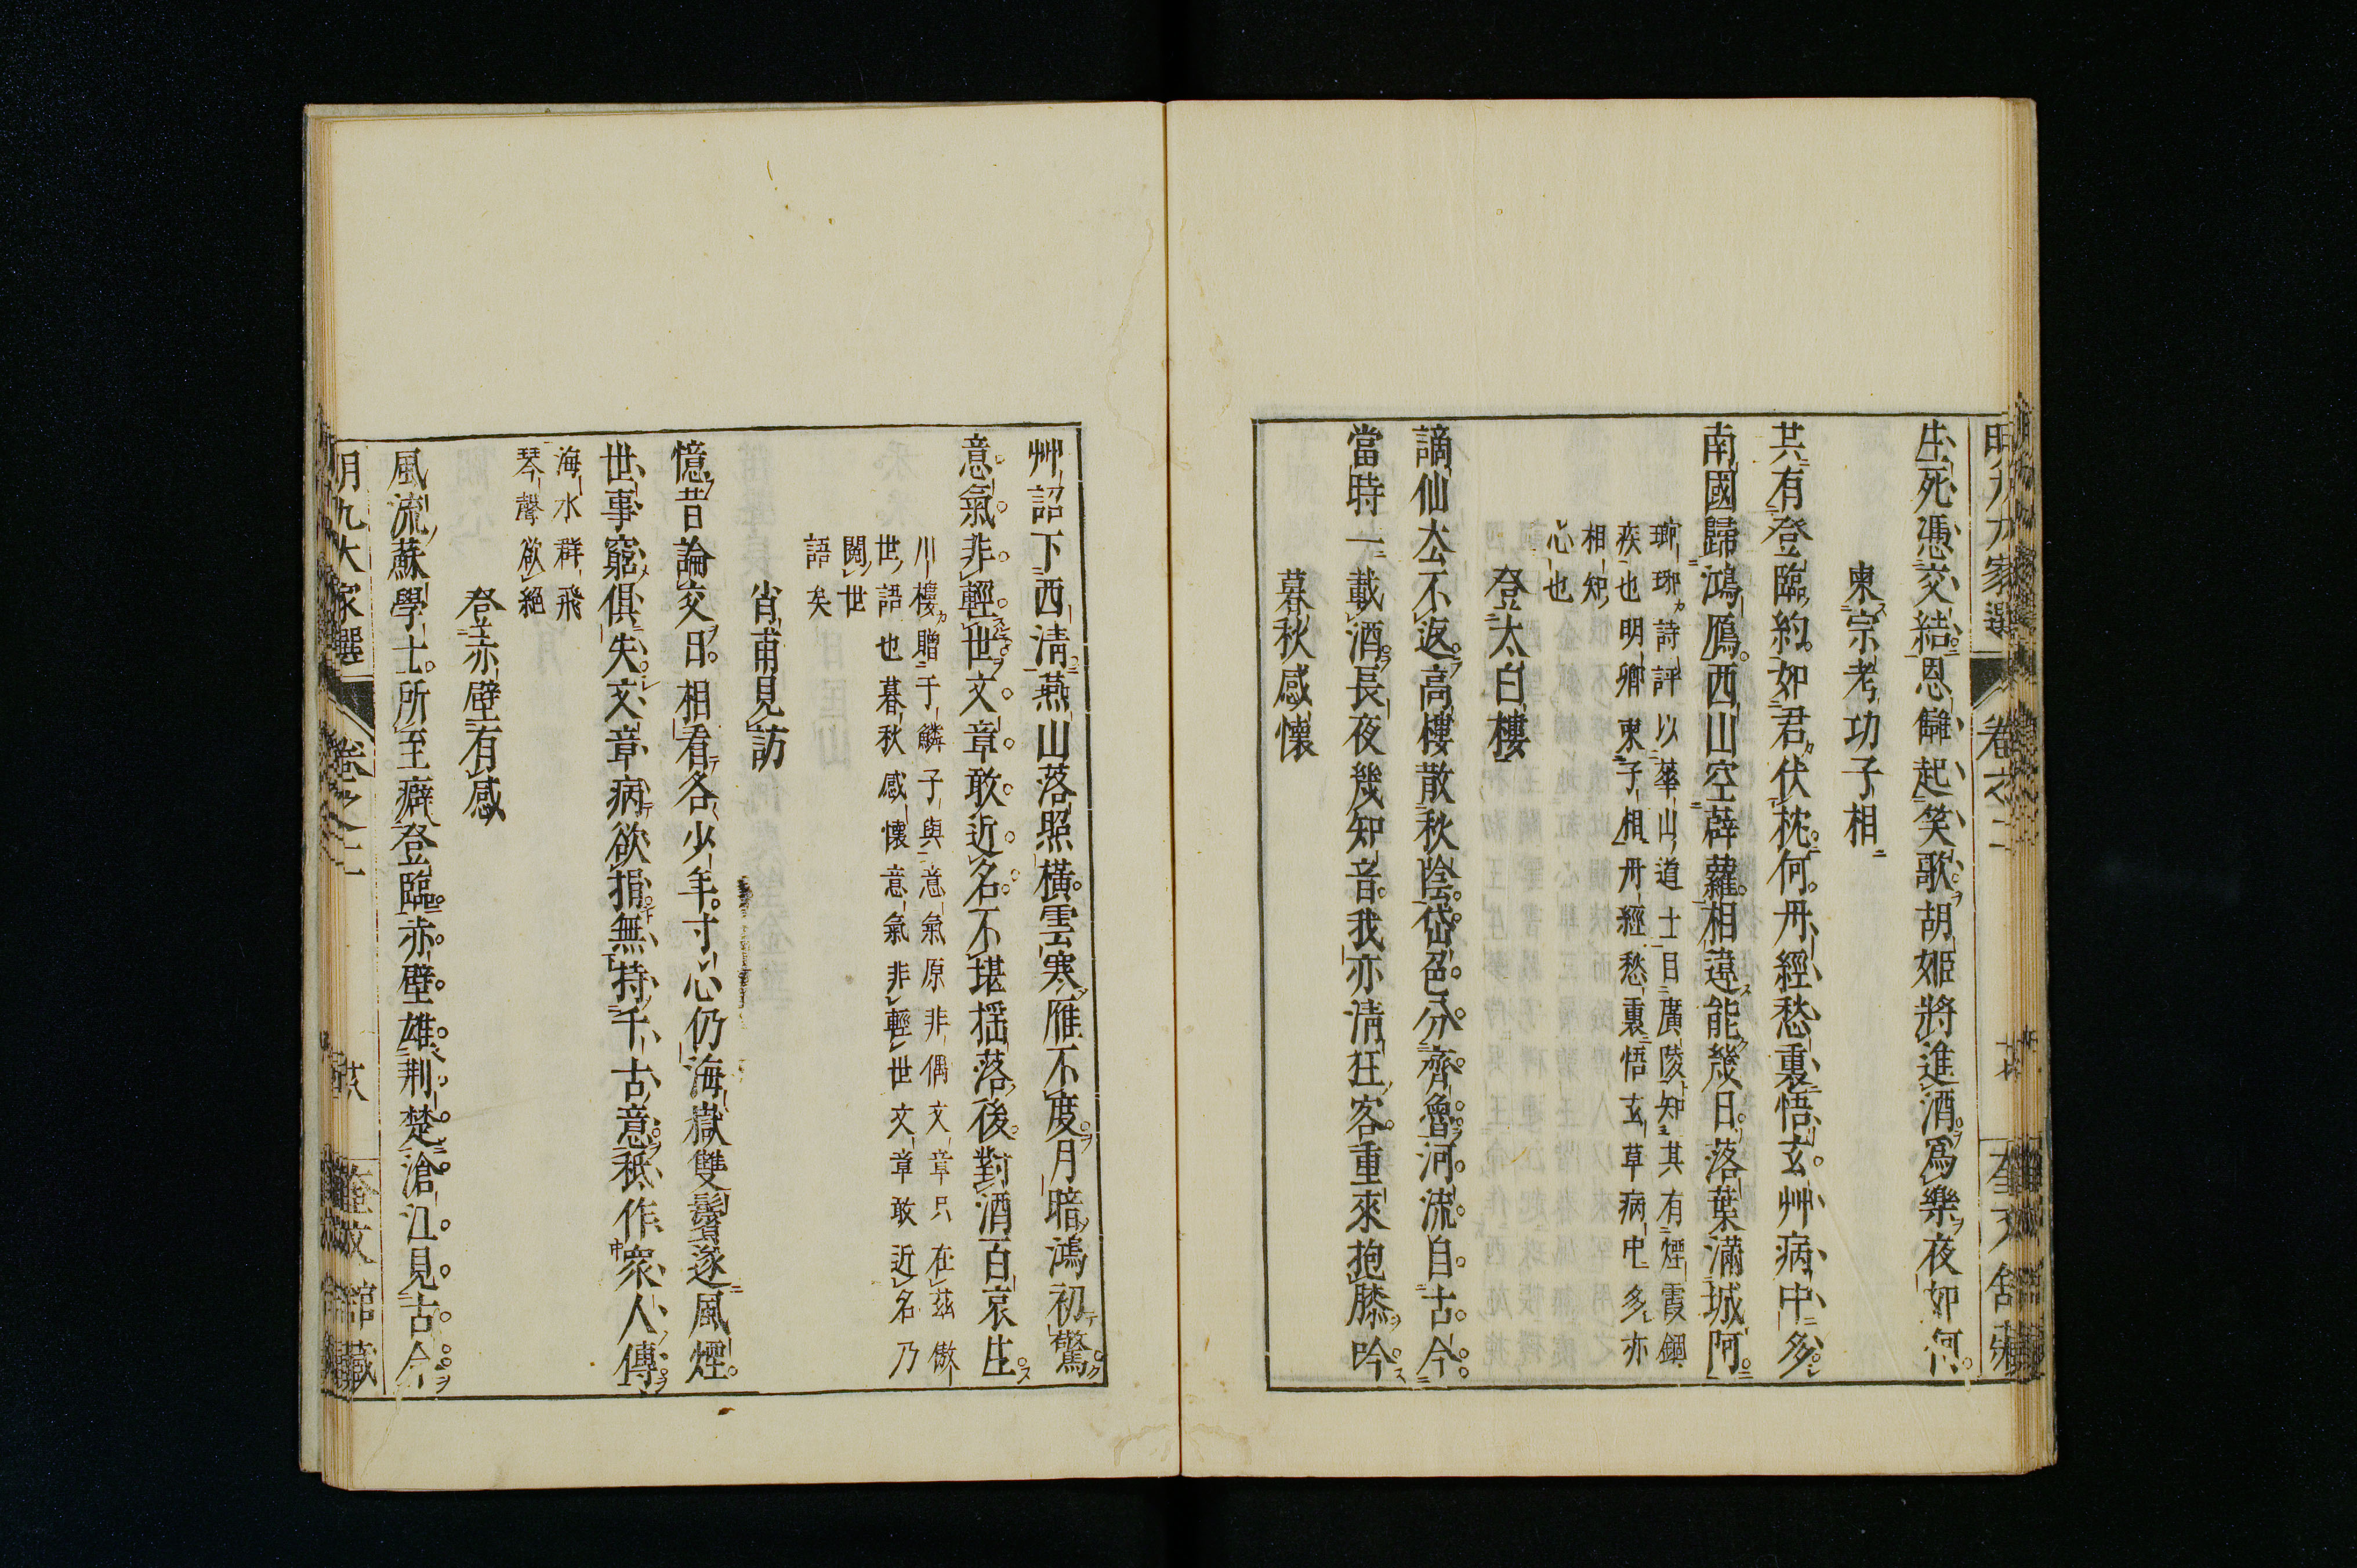 生死憑交結恩讎起笑歌胡姬將進酒爲樂夜如何
柬宗考功子相
共有登臨約如君伏枕何丹經愁裏悟玄艸病中多
南國歸鴻鴈西山空薜蘿相違能幾日落葉滿城阿
瑯琊詩評以華山道士目廣陵知其有煙霞錮
疾也明卿柬子相丹經愁裏悟玄草病中多亦
相知
心也
登太白樓
謫仙去不返高樓散秋陰岱色分齊魯河流自古今
當時一載酒長夜幾知音我亦淸狂客重來抱膝吟
暮秋感懷
艸詔下西淸燕山落照橫雲寒雁不度月暗鴻初驚
意氣非輕世文章敢近名不堪搖落後對酒百哀生
川樓贈于鱗子與意氣原非偶文章只在茲傲
世語也暮秋感懷意氣非輕世文章敢近名乃
閱世
語矣
肖甫見訪
憶昔論交日相看各少年寸心仍海嶽雙鬢逐風煙
世事窮俱失文章病欲捐無持千古意秪作衆人傳
海水群飛
琴聲欲絕
登赤壁有感
風流蘇學士所至癖登臨赤壁雄荆楚滄江見古今
明九大家選 卷之二